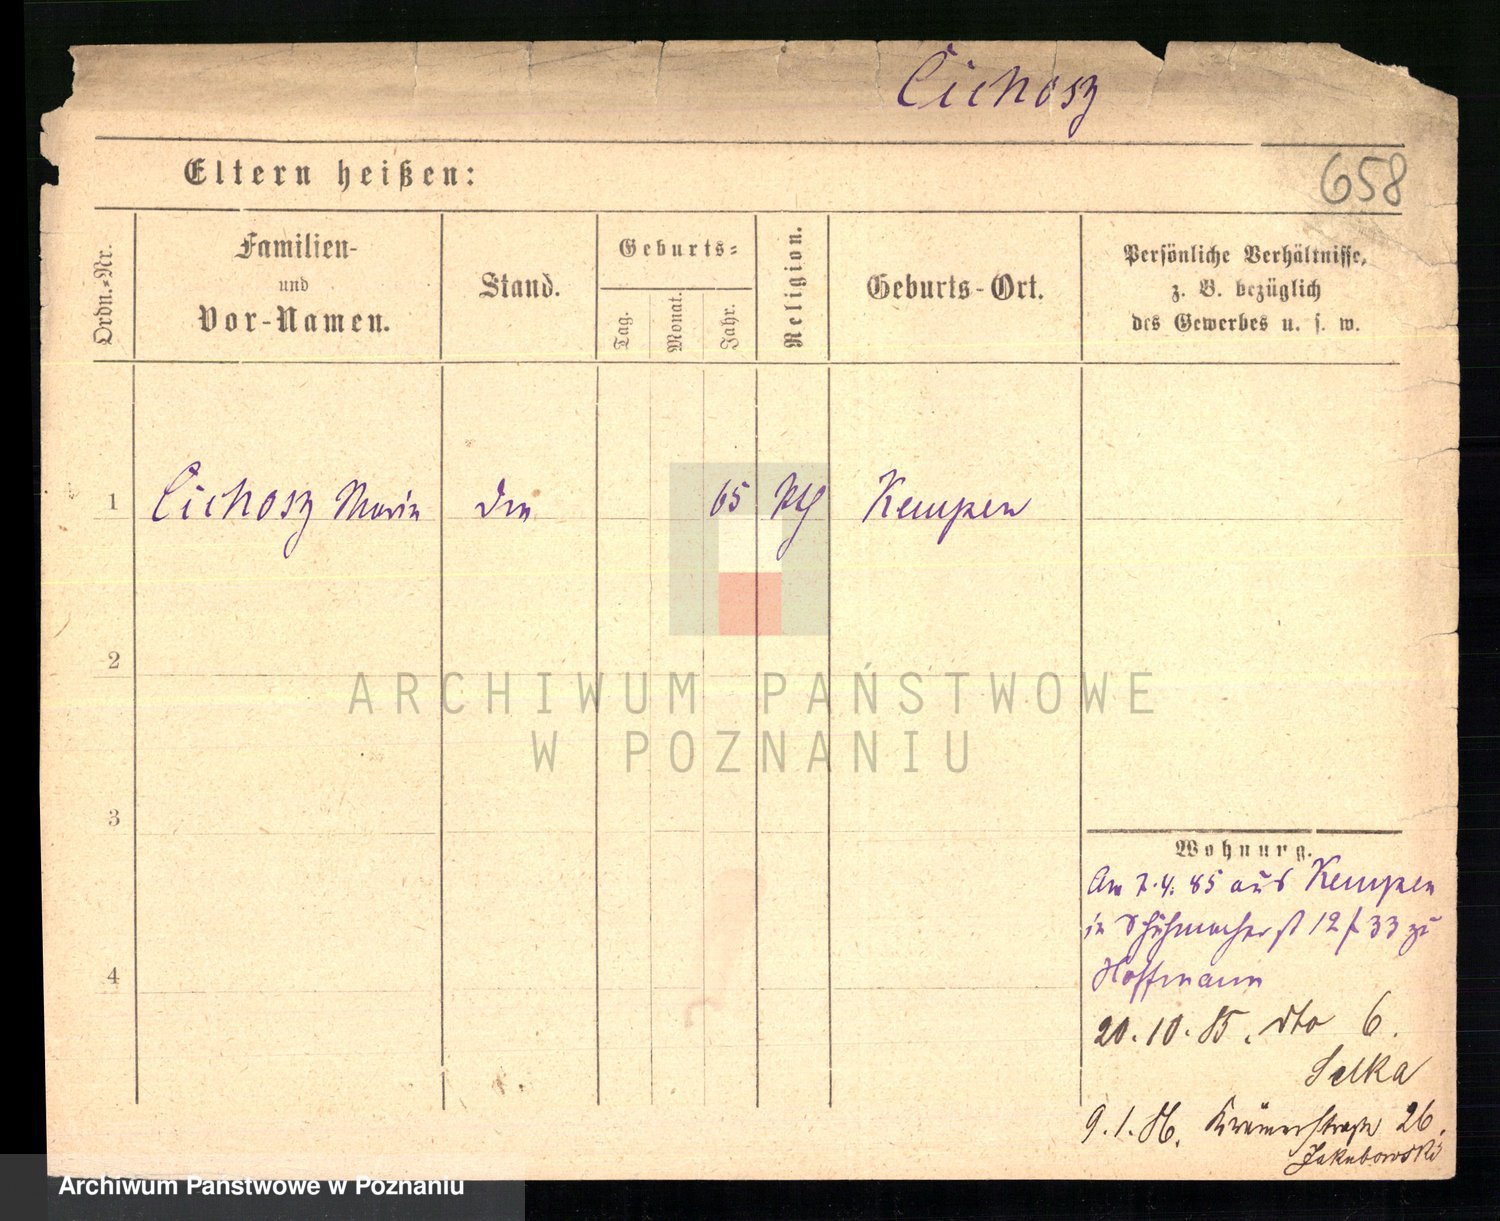 Cichosz
Eltern heißen:
658
Ordn.-Nr.
Familien-
und
Vor-Namen.
Stand.
Geburts-
Tag.
Monat.
Jahr.
Religion.
Geburts-Ort.
Persönliche Verhältnisse,
z. B. bezüglich
des Gewerbes u. s. w.
1
Cichosz Marie
65
Kth
Kempen
2
ARCHIWUM PAŃSTWOWE
W POZNANIU
3
Wohnung.
Am 7.4.85 aus Kempen
in Schuhmacherst 12/33 zu
Hoffmann
20.10.85. dto 6.
Selka
9.1.86. Krämerstraße 26.
Jakubowski
4
Archiwum Państwowe w Poznaniu